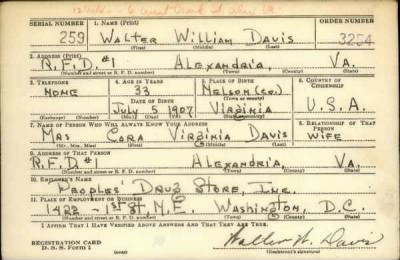 SERIAL NUMBER 1. NAME (Print) ORDER NUMBER
259 WALTER WILLIAM DAVIS 3254
(First) (Middle) (Last)
2. ADDRESS (Print)
R.F.D. #1 ALEXANDRIA, VA.
(Number and street or R. F. D. number) (Town) (County) (State)
3. TELEPHONE 4. AGE IN YEARS 5. PLACE OF BIRTH 6. COUNTRY OF CITIZENSHIP
NONE 33 NELSON (CO.)
(Town or county)
DATE OF BIRTH
JULY 5 1907 VIRGINIA U.S.A.
(Exchange) (Number) (Mo.) (Day) (Yr.) (State or country)
7. NAME OF PERSON WHO WILL ALWAYS KNOW YOUR ADDRESS 8. RELATIONSHIP OF THAT PERSON
MRS CORA VIRGINIA DAVIS WIFE
(Mr., Mrs., Miss) (First) (Middle) (Last)
9. ADDRESS OF THAT PERSON
R.F.D. #1 ALEXANDRIA, VA.
(Number and street or R. F. D. number) (Town) (County) (State)
10. EMPLOYER'S NAME
PEOPLES' DRUG STORE, INC.
11. PLACE OF EMPLOYMENT OR BUSINESS
1422 - 1ST ST. N.E. WASHINGTON, D.C.
(Number and street or R. F. D. number) (Town) (County) (State)
I AFFIRM THAT I HAVE VERIFIED ABOVE ANSWERS AND THAT THEY ARE TRUE.
REGISTRATION CARD
D. S. S. Form 1
Walter W. Davis
(Registrant's signature)